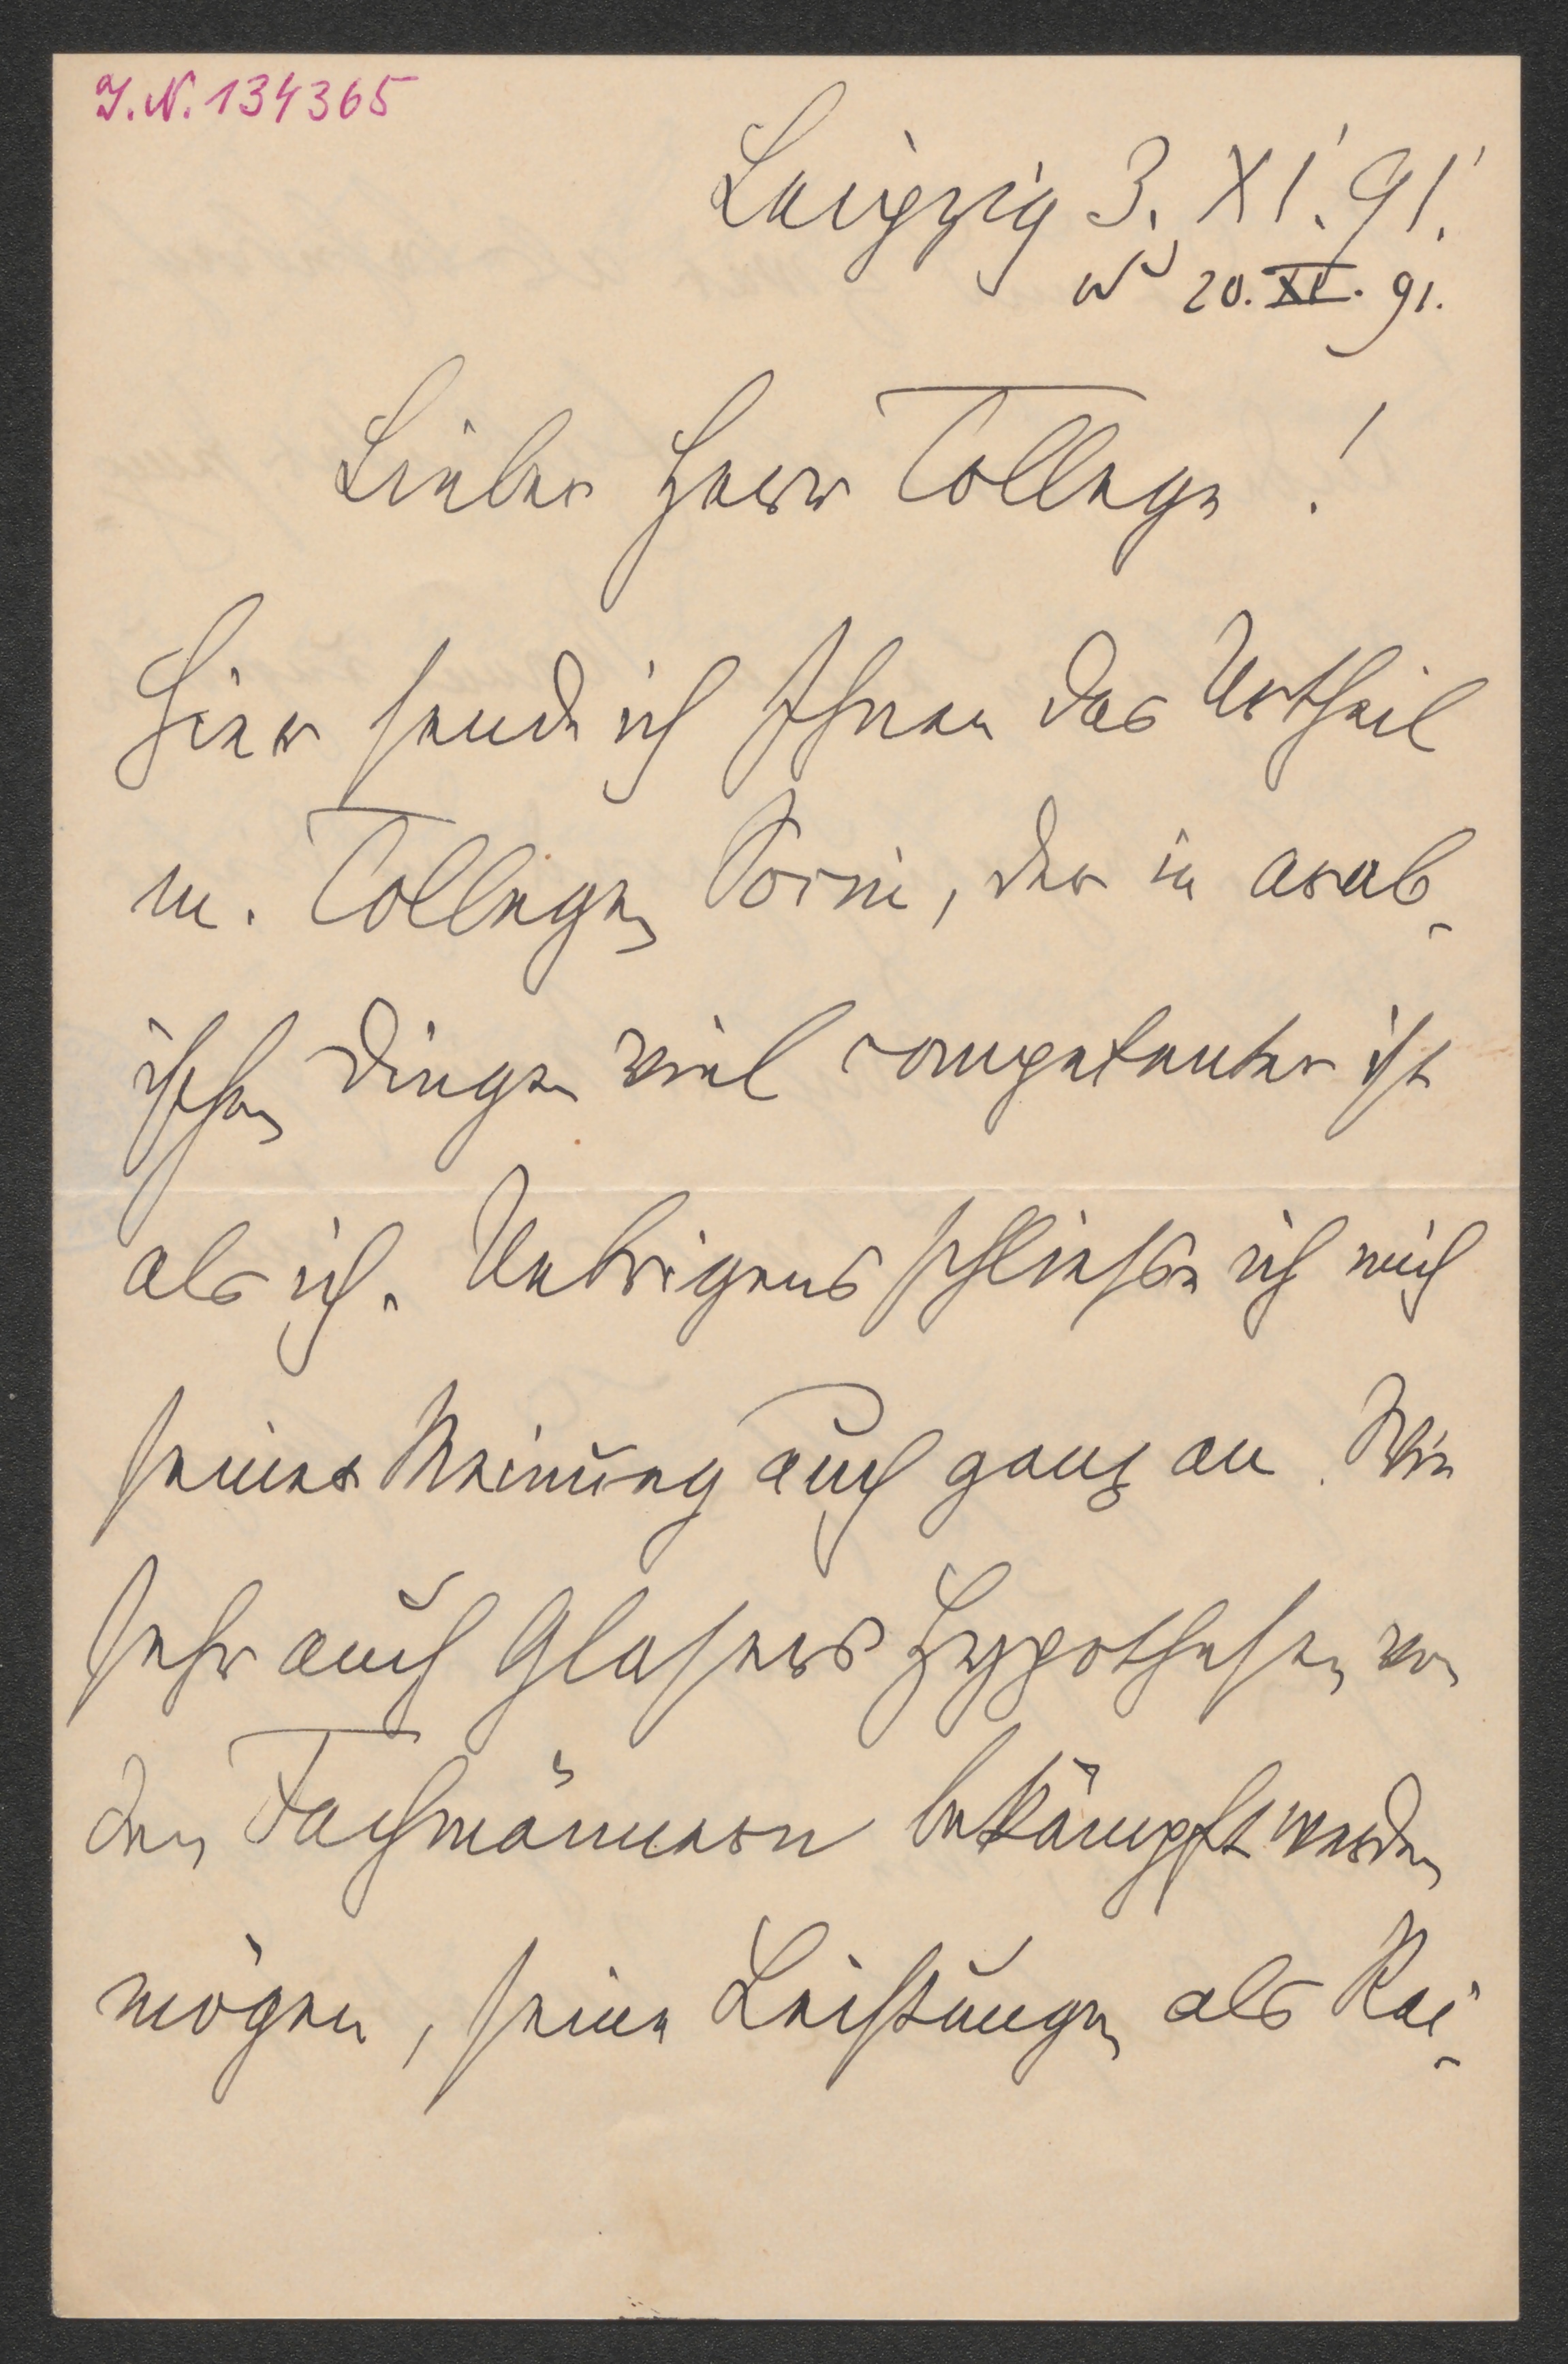 I.N. 134365
Leipzig 3. XI. 91.
20. XI. 91.
Lieber Herr College!
Hier sende ich Ihnen das Urtheil
m. Collegen Socin, der in arab-
ischen Dingen viel competenter ist
als ich. Uebrigens schließe ich mich
seiner Meinung auch ganz an. Wie
sehr auch Glasers Hypothesen von
den Fachmännern bekämpft werden
mögen, seine Leistungen als Rei-